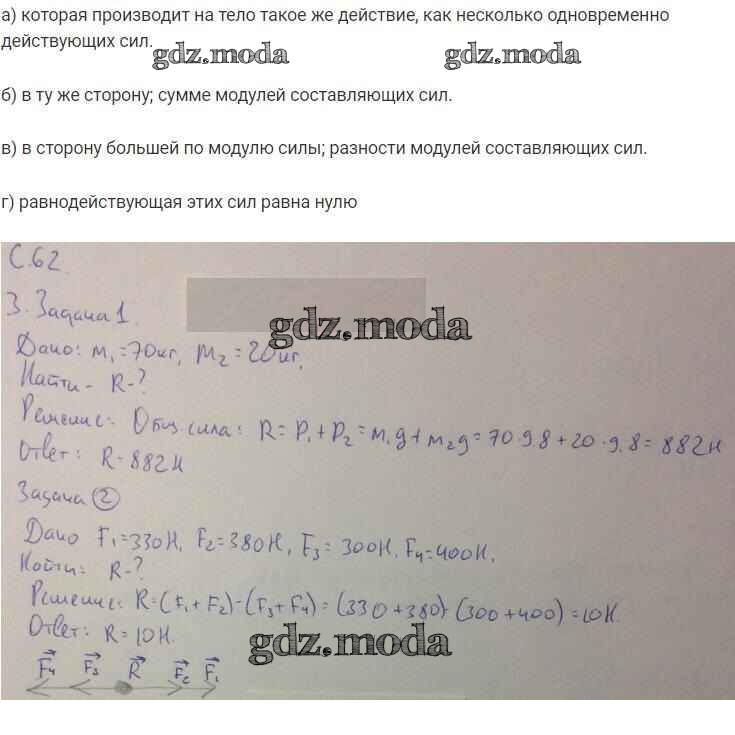 а) которая производит на тело такое же действие, как несколько одновременно
действующих сил.
gdz.moda gdz.moda
б) в ту же сторону; сумме модулей составляющих сил.
в) в сторону большей по модулю силы; разности модулей составляющих сил.
г) равнодействующая этих сил равна нулю
С.62.
3. Задача 1.
gdz.moda
Дано: m₁=70кг, m₂=20кг,
Найти - R-?
Решение: Общ. сила: R= P₁+P₂=m₁g+m₂g=70·9,8+20·9,8=882Н
Ответ: R=882Н
Задача ②
Дано F₁=330Н, F₂=380Н, F₃=300Н, F₄=400Н.
Найти: R-?
Решение: R=(F₁+F₂)-(F₃+F₄)=(330+380)-(300+400)=10Н.
Ответ: R=10Н.
gdz.moda
F₄ F₃ R F₂ F₁